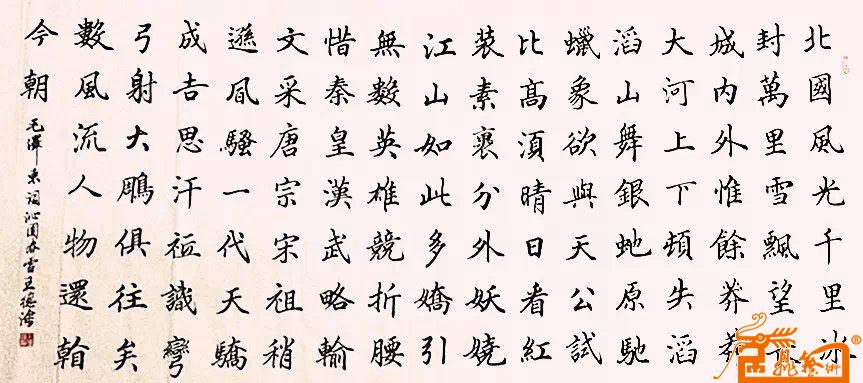 北國風光千里冰
封萬里雪飄望
城内外惟餘莽莽
大河上下頓失滔
滔山舞銀虵原馳
蠟象欲與天公試
比髙須晴日看紅
裝素裹分外妖嬈
江山如此多嬌引
無數英雄競折腰
惜秦皇漢武略輸
文采唐宗宋祖稍
遜風騷一代天驕
成吉思汗祇識彎
弓射大鵰俱往矣
數風流人物還
今朝
毛澤東詞沁園春雪王德